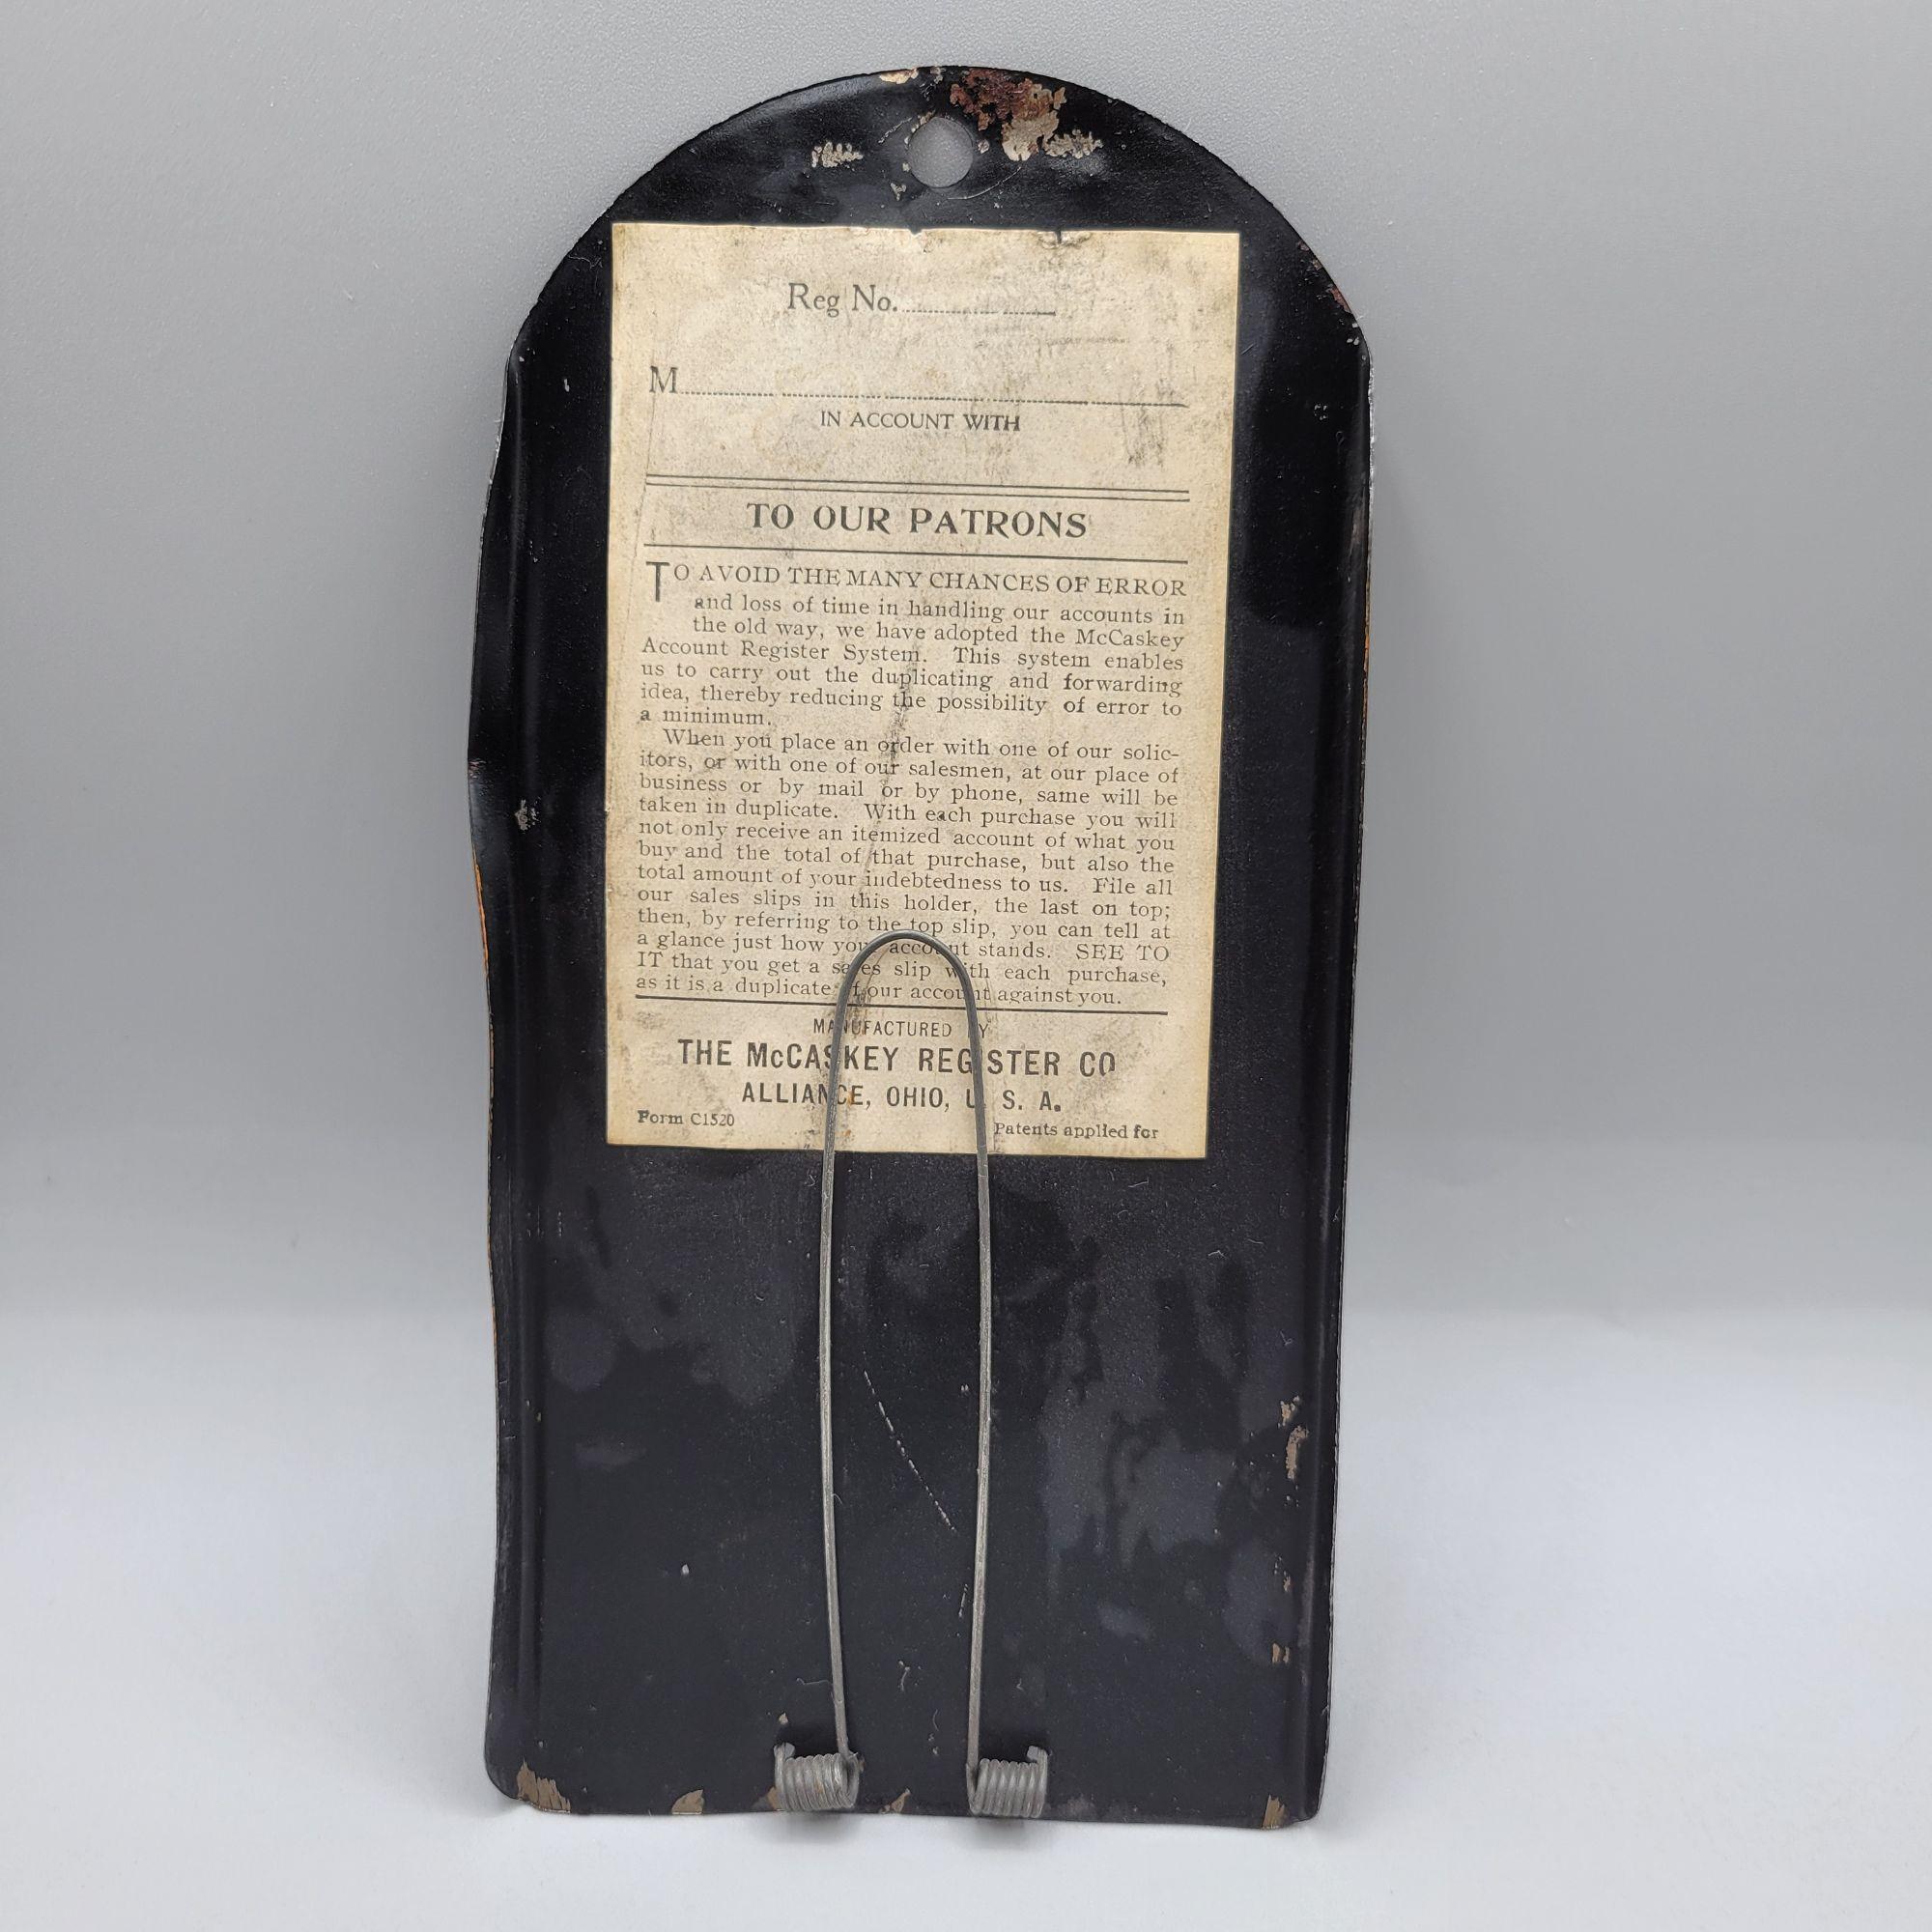 Reg No.
M
IN ACCOUNT WITH
TO OUR PATRONS
TO AVOID THE MANY CHANCES OF ERROR
and loss of time in handling our accounts in
the old way, we have adopted the McCaskey
Account Register System. This system enables
us to carry out the duplicating and forwarding
idea, thereby reducing the possibility of error to
a minimum.
When you place an order with one of our solic-
itors, or with one of our salesmen, at our place of
business or by mail or by phone, same will be
taken in duplicate. With each purchase you will
not only receive an itemized account of what you
buy and the total of that purchase, but also the
total amount of your indebtedness to us. File all
our sales slips in this holder, the last on top;
then, by referring to the top slip, you can tell at
a glance just how your account stands. SEE TO
IT that you get a sales slip with each purchase,
as it is a duplicate of our account against you.
MANUFACTURED BY
THE McCASKEY REGISTER CO
ALLIANCE, OHIO, U. S. A.
Form C1520
Patents applied for